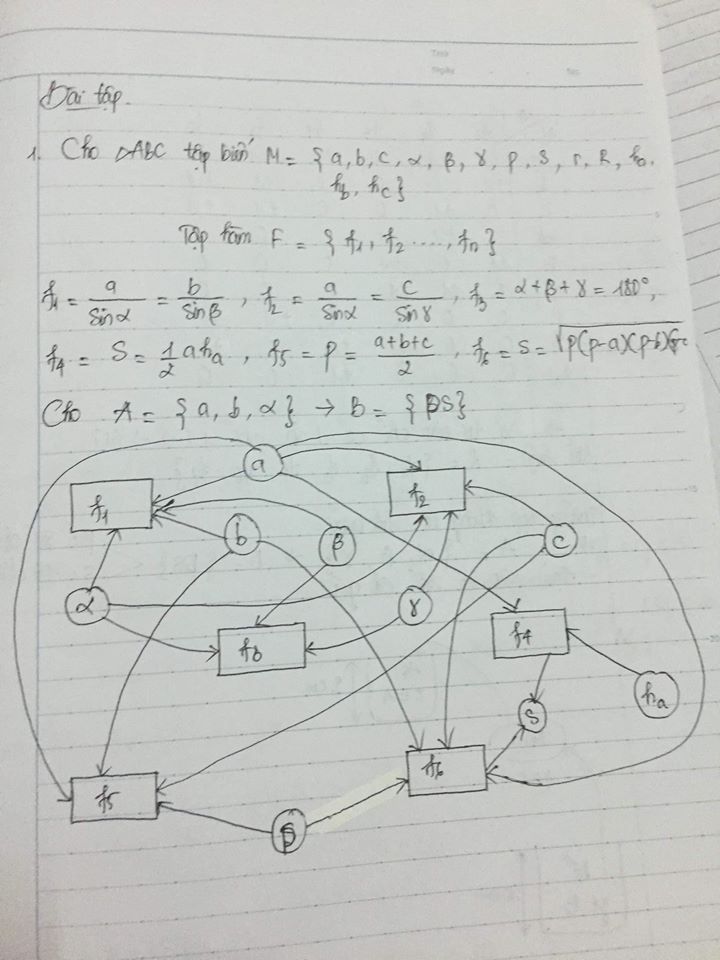 Thứ
Ngày No.
Bài tập.
1. Cho △ABC tập biến M = {a, b, c, α, β, γ, p, S, r, R, ha,
hb, hc}
Tập hàm F = {f1, f2 ...., fn}
f1 = a/sinα = b/sinβ , f2 = a/sinα = c/sinγ , f3 = α+β+γ = 180°,
f4 = S = 1/2 aha , f5 = p = a+b+c/2 , f6 = S = √p(p-a)(p-b)(p-c
Cho A = {a, b, α} → B = {pS}
a
f1
f2
b
β
c
α
γ
f3
f4
ha
S
f6
f5
p